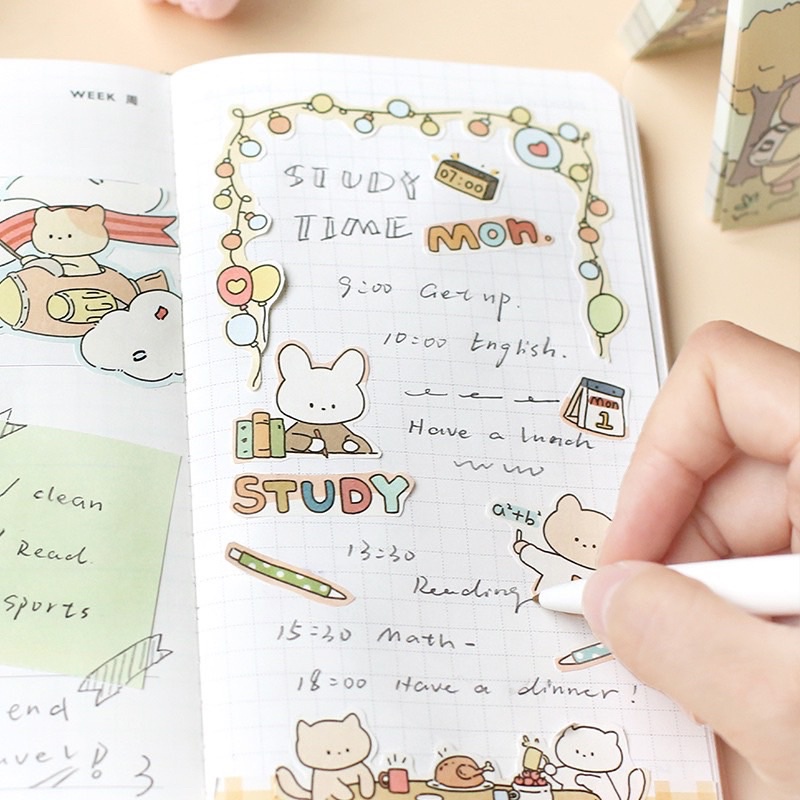 WEEK 周
clean
Read.
sports
end
3
STUDY
07:00
TIME Mon.
9:00 Get up.
10:00 English.
Mon
1
Have a lunch
STUDY
a²+b²
13:30
Reading
15:30 Math-
18:00 Have a dinner!